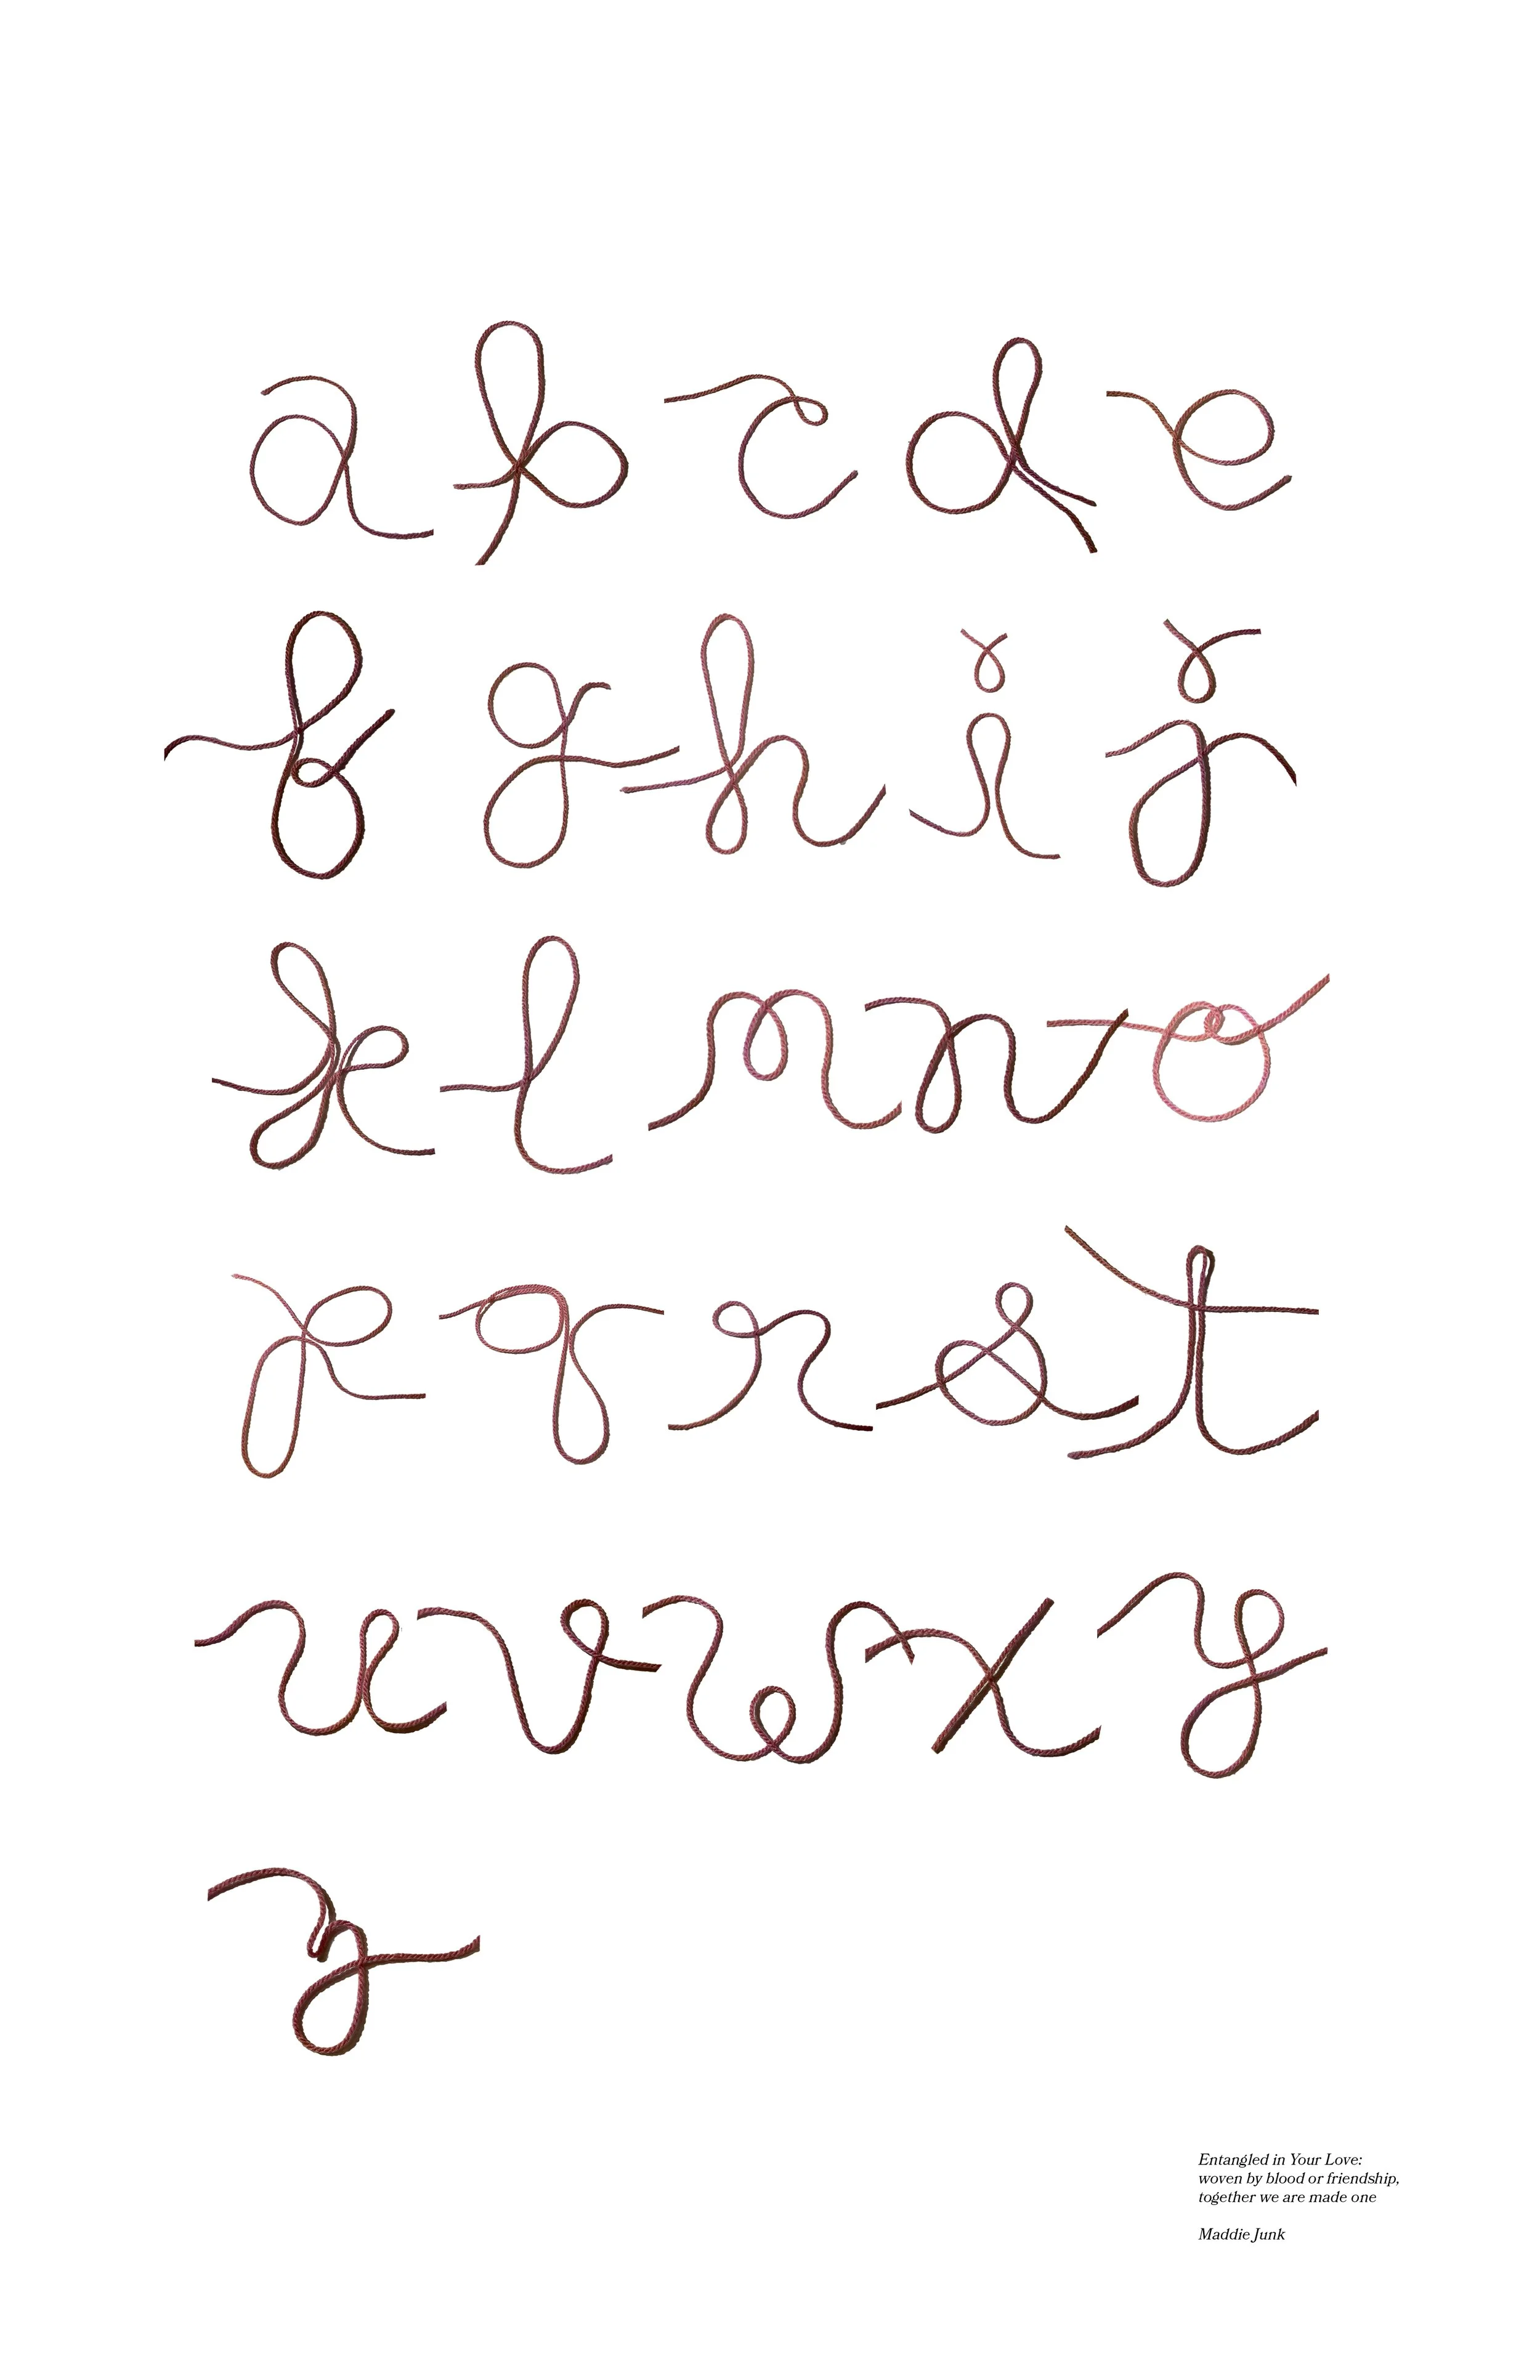 a b c d e
f g h i j
k l m n o
p q r s t
u v w x y
z
Entangled in Your Love:
woven by blood or friendship,
together we are made one
Maddie Junk